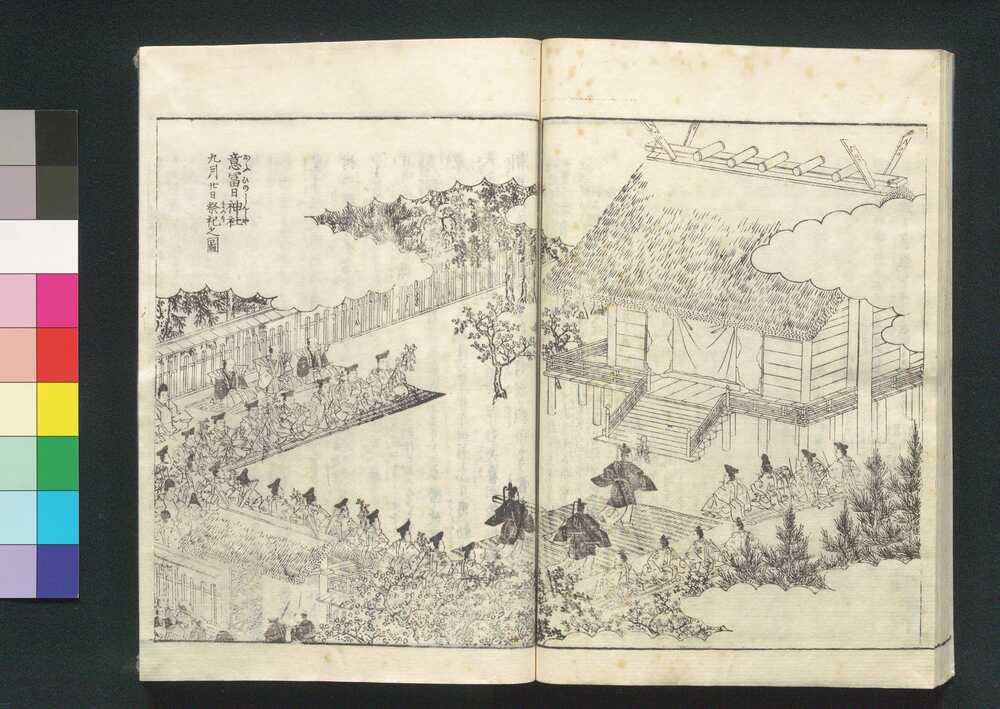 意富日神社
九月廿日祭祀之圖